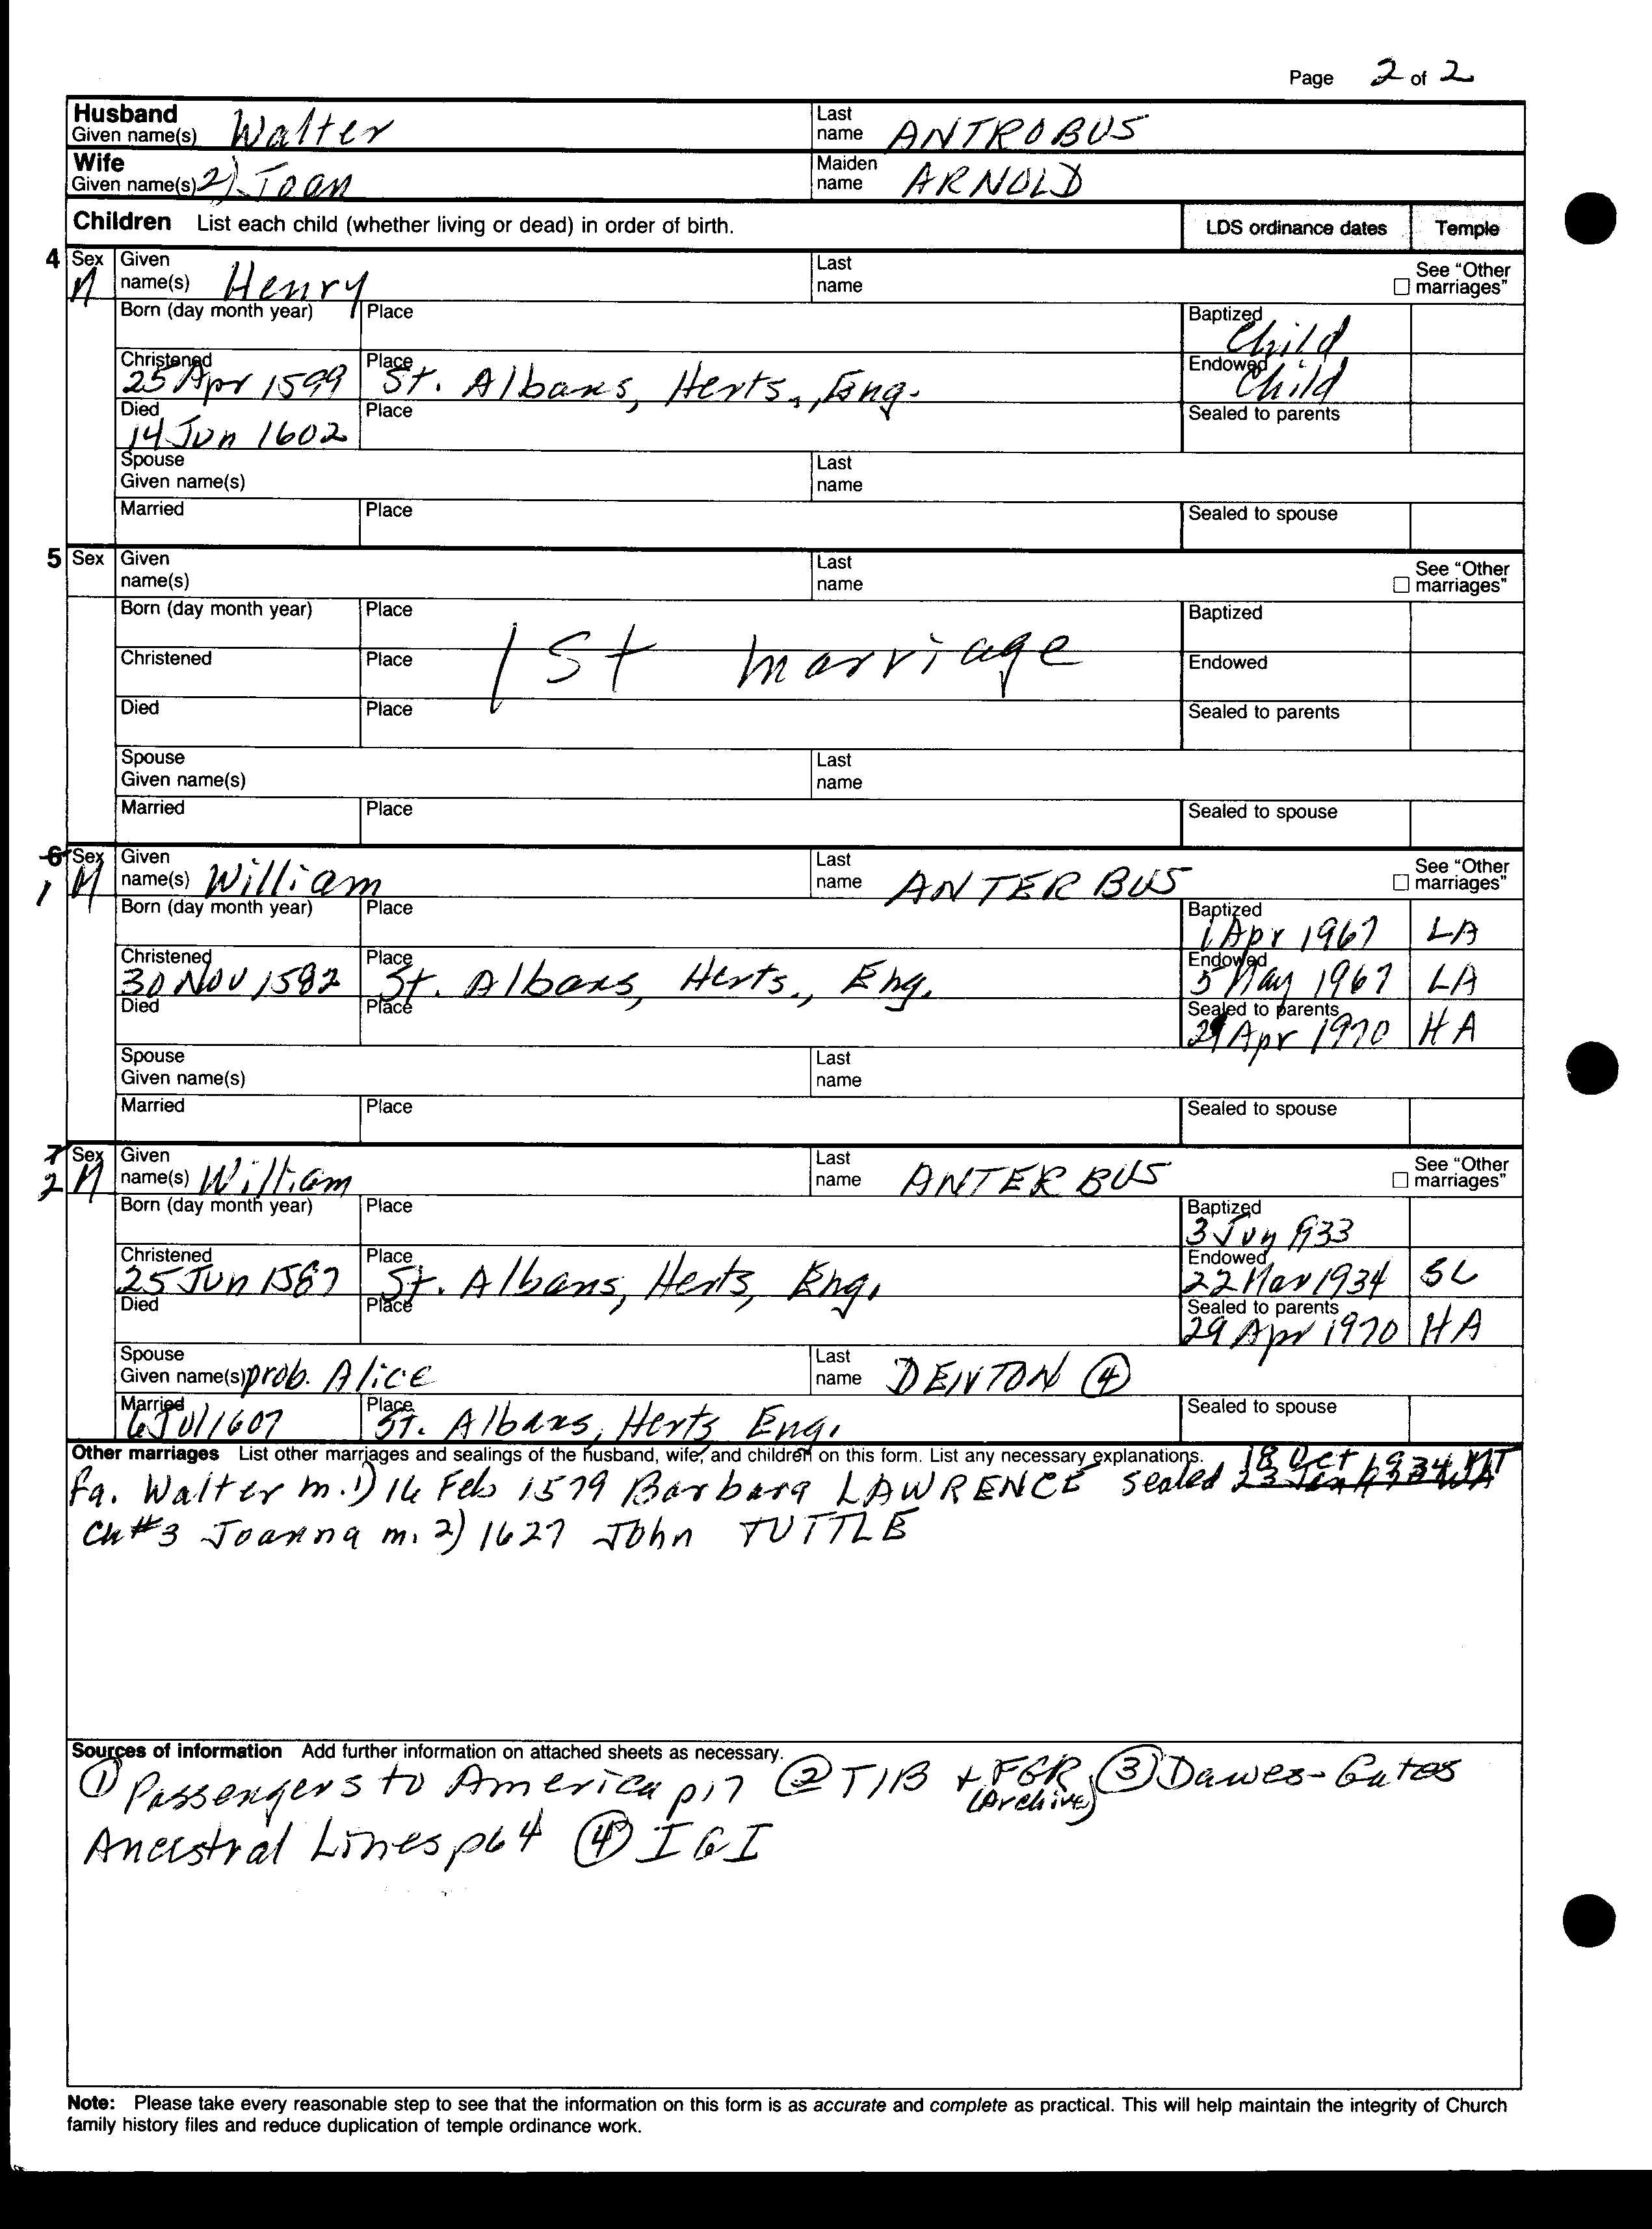 Page 2 of 2
Husband
Given name(s) Walter
Last name ANTROBUS
Wife
Given name(s) 2) Joan
Maiden name ARNOLD
Children List each child (whether living or dead) in order of birth.
LDS ordinance dates Temple
4 Sex M Given name(s) Henry
Last name
See "Other marriages"
Born (day month year) Place
Baptized Child
Christened 25 Apr 1599 Place St. Albans, Herts., Eng.
Endowed Child
Died 14 Jun 1602 Place
Sealed to parents
Spouse
Given name(s)
Last name
Married Place
Sealed to spouse
5 Sex Given name(s)
Last name
See "Other marriages"
Born (day month year) Place
Baptized
1st marriage
Christened Place
Endowed
Died Place
Sealed to parents
Spouse
Given name(s)
Last name
Married Place
Sealed to spouse
6 1 Sex M Given name(s) William
Last name ANTERBUS
See "Other marriages"
Born (day month year) Place
Baptized 1 Apr 1967 LA
Christened 30 Nov 1582 Place St. Albans, Herts., Eng.
Endowed 5 May 1967 LA
Died Place
Sealed to parents 29 Apr 1970 HA
Spouse
Given name(s)
Last name
Married Place
Sealed to spouse
7 2 Sex M Given name(s) William
Last name ANTERBUS
See "Other marriages"
Born (day month year) Place
Baptized 3 Jun 1933
Christened 25 Jun 1587 Place St. Albans, Herts, Eng.
Endowed 22 Mar 1934 SL
Died Place
Sealed to parents 29 Apr 1970 HA
Spouse
Given name(s) prob. Alice
Last name DENTON ④
Married 6 Jul 1607 Place St. Albans, Herts Eng.
Sealed to spouse
Other marriages List other marriages and sealings of the husband, wife, and children on this form. List any necessary explanations.
18 Oct 1934
fa. Walter m. 1) 16 Feb 1579 Barbara LAWRENCE sealed
Ch #3 Joanna m. 2) 1627 John TUTTLE
Sources of information Add further information on attached sheets as necessary.
① Passengers to America p17 ② TIB + FGR (Archive) ③ Dawes-Gates
Ancestral Lines p64 ④ IGI
Note: Please take every reasonable step to see that the information on this form is as accurate and complete as practical. This will help maintain the integrity of Church
family history files and reduce duplication of temple ordinance work.